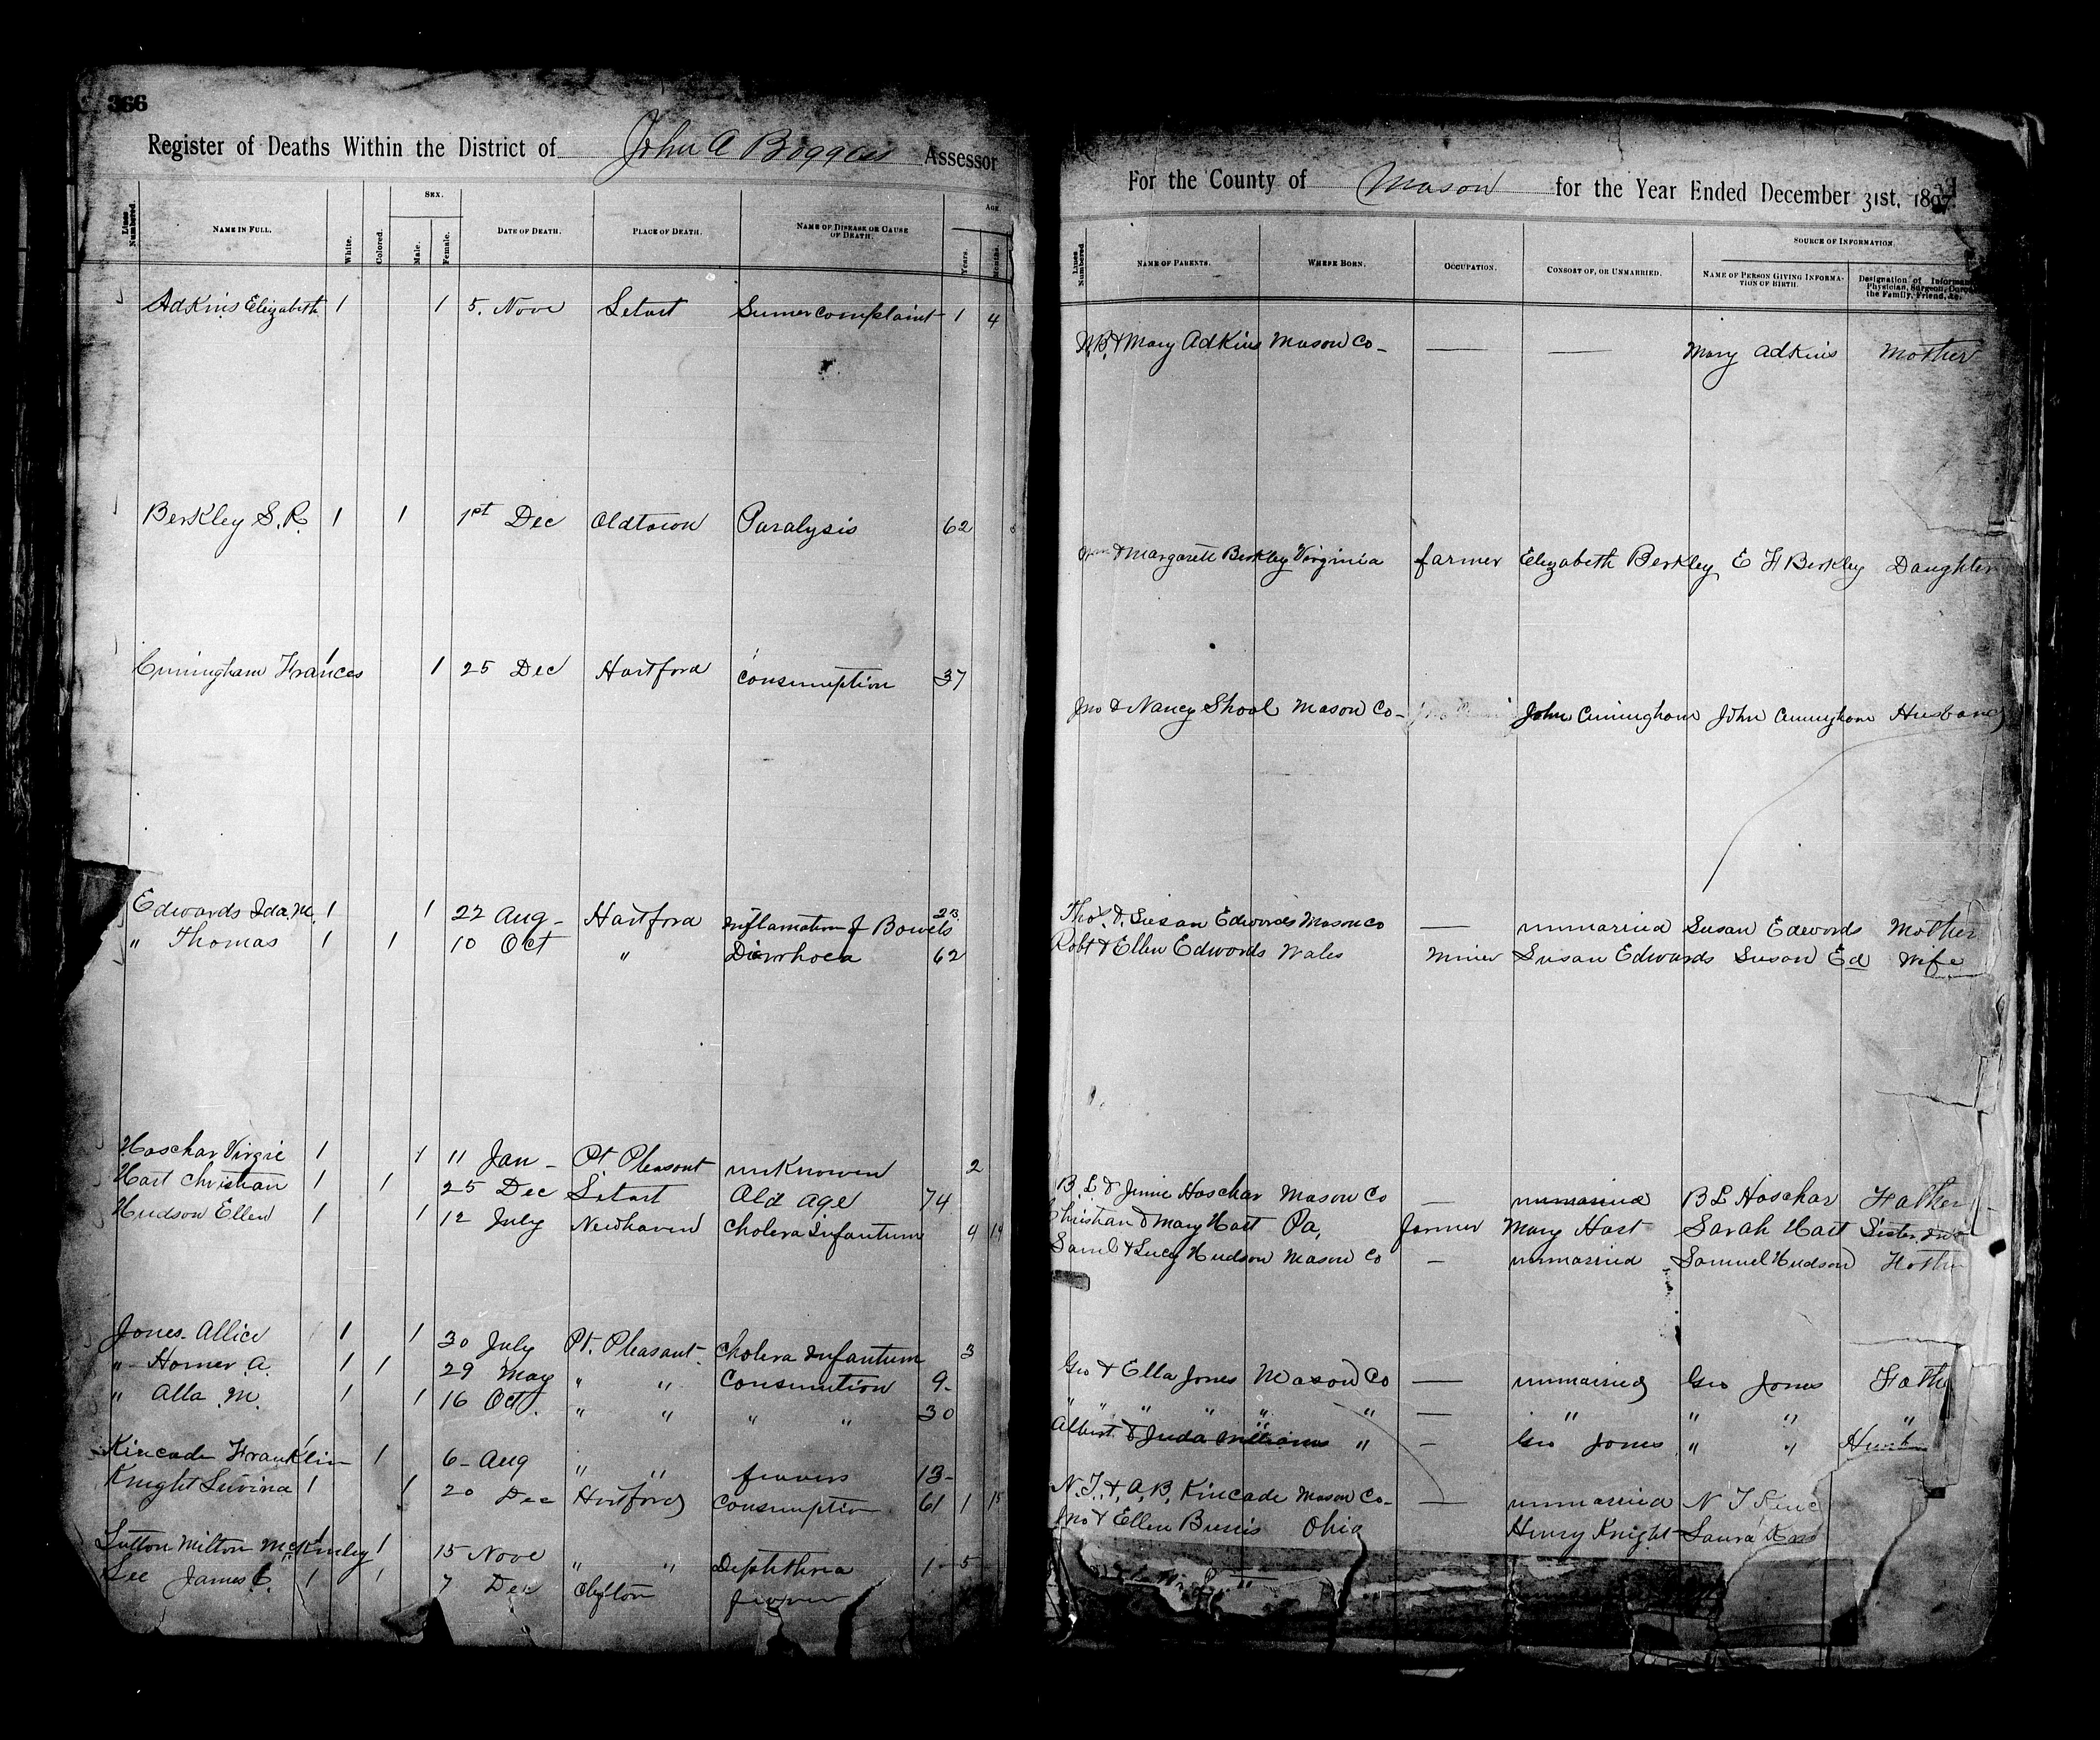 366
Register of Deaths Within the District of John A Boggess Assessor
Lines Numbered. NAME IN FULL. White. Colored. SEX. Male. Female. DATE OF DEATH. PLACE OF DEATH. NAME OF DISEASE OR CAUSE OF DEATH. AGE. Years. Months.
Adkins Elizabeth 1 1 5. Nove Letart Sumer complaint 1 4
Berkley S. R. 1 1 1st Dec Oldtown Paralysis 62
Cuningham Frances 1 1 25 Dec Hartford Consumption 37
Edwards Ida M. 1 1 22 Aug - Hartford Inflamation of Bowels 23.
" Thomas 1 1 10 Oct " Diarrhoea 62
Haschar Virgie 1 1 11 Jan - Pt. Pleasant unknown 2
Hart Christian 1 1 25 Dec Letart Old age 74
Hudson Ellen 1 1 12 July Newhaven Cholera Infantum 4 14
Jones Allice 1 1 30 July Pt. Pleasant Cholera Infantum 3
" Homer A. 1 1 29 May " " Consumtion 9-
" Alla M. 1 1 16 Oct. " " " " 30
Kincade Franklin 1 1 6 - Aug " " fevers 13-
Knight Luvina 1 1 20 Dec Hartford Consumption 61 1 15
Lutton Milton McKinley 1 1 15 Nove " " Diphthria 1- 5
Lee James C. 1 1 7 Dec Clifton fever
For the County of Mason for the Year Ended December 31st, 189
Lines Numbered NAME OF PARENTS. WHERE BORN. OCCUPATION. CONSORT OF, OR UNMARRIED. SOURCE OF INFORMATION. NAME OF PERSON GIVING INFORMATION OF BIRTH. Designation of Informant, Physician, Surgeon, the Family, Friend, &c.
& Mary Adkins Mason Co - — — Mary Adkins Mother
Wm & Margarett Berkley Virginia farmer Elizabeth Berkley E F Berkley Daughter
Jno & Nancy Shool Mason Co - John Cuningham John Cuningham Husband
Thos. & Susan Edwards Mason Co — unmarried Susan Edwards Mother
Robt & Ellen Edwards Wales Miner Susan Edwards Susan Ed Wife
B. L & Jinnie Haschar Mason Co — unmarried B L Haschar Father
Christian & Mary Hart Pa. farmer Mary Hart Sarah Hart Sister
Saml & Lucy Hudson Mason Co - unmarried Samuel Hudson Father
Geo & Ella Jones Mason Co — unmarried Geo Jones Fath
" " " " " " — " " " "
Albert & Juda Williams " - Geo Jones " " Husb
N. T. & A. B. Kincade Mason Co - — unmarried N T Kinc
Jno & Ellen Burris Ohio Henry Knight Laura